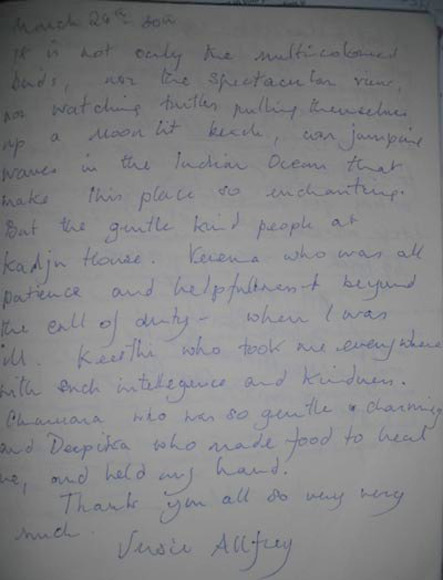 March 29th
It is not only the multicoloured
birds, nor the spectacular view,
nor watching turtles pulling themselves
up a moon lit beach, nor jumping
waves in the Indian Ocean that
make this place so enchanting.
But the gentle kind people at
Kadju House. who was all
patience and helpfulness beyond
the call of duty - when I was
ill. Keerthi who took me everywhere
with such intellegence and kindness.
Chamara who was so gentle & charming
and Deepika who made food to heal
me, and held my hand.
Thank you all so very very
much.
Allfrey